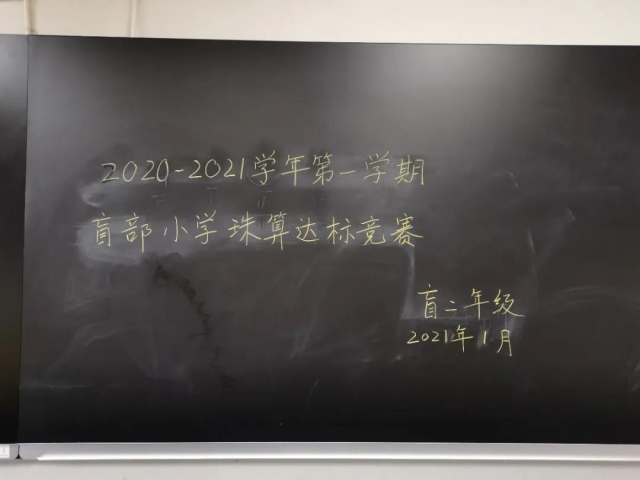 2020-2021学年第一学期
盲部小学珠算达标竞赛
盲二年级
2021年1月